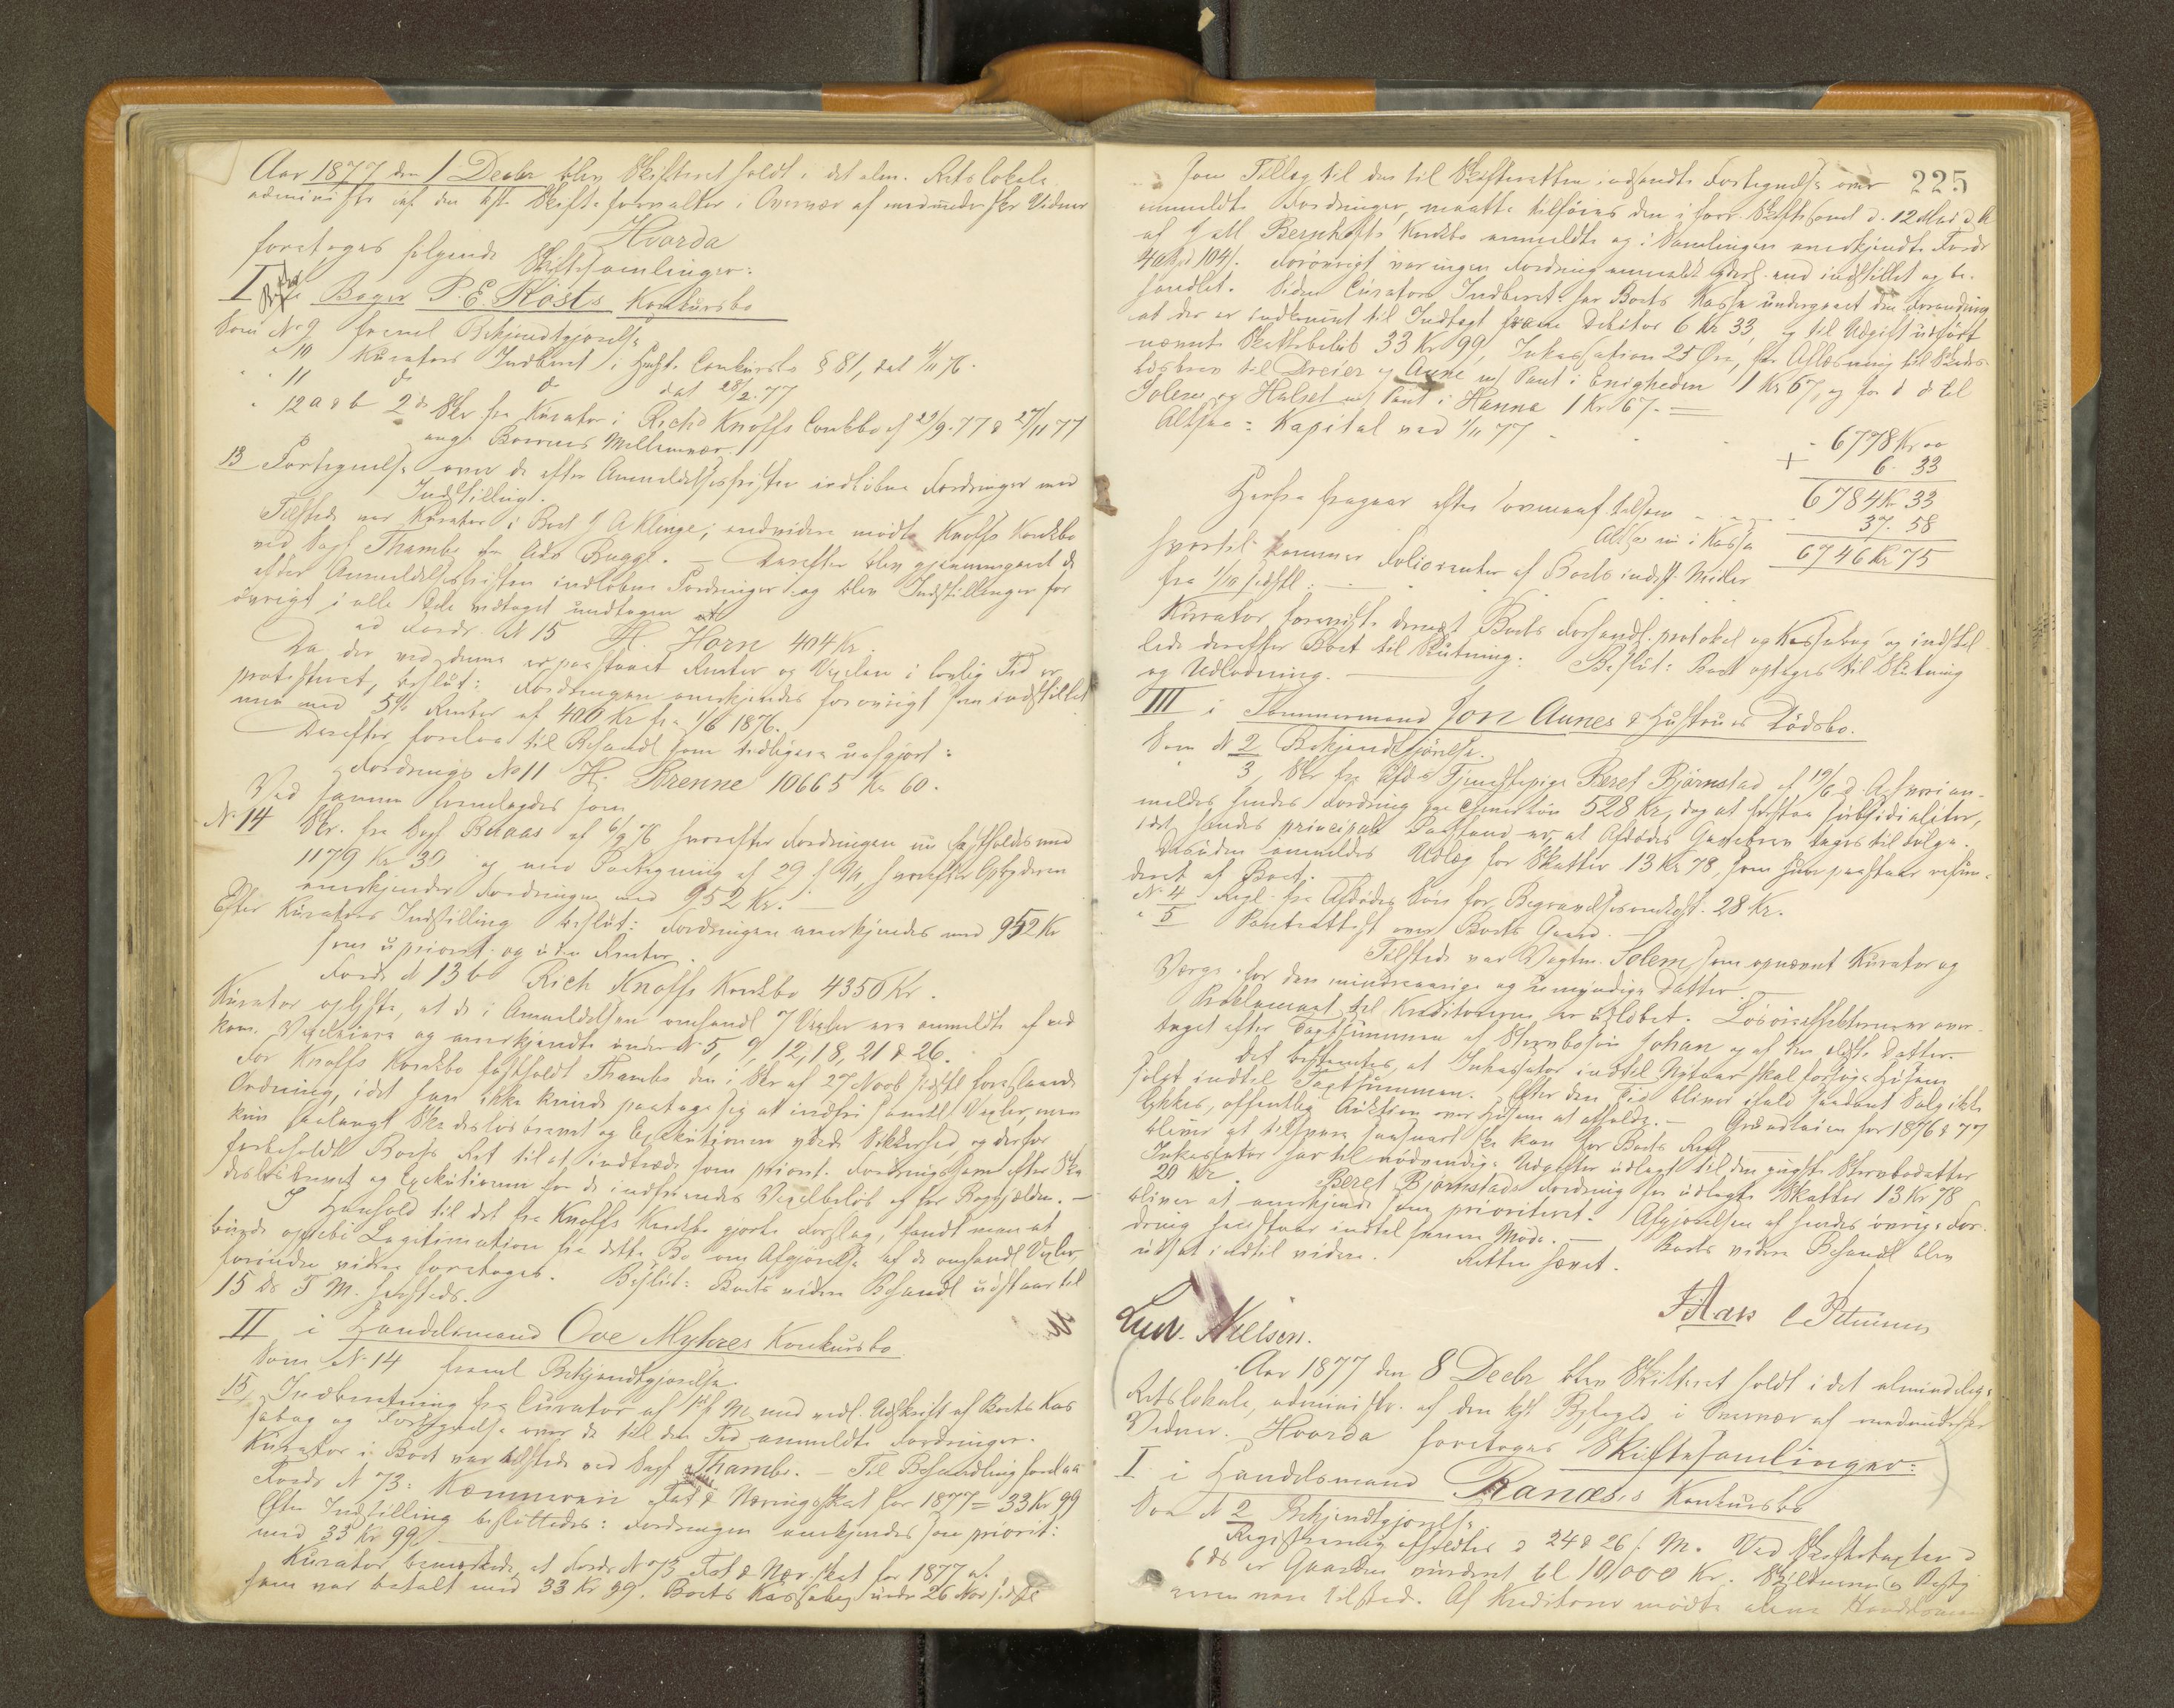 Aar 1877 den 1 Decbr blev Skifteret holdt i det alm. Retslokale
administr. af den kst. Skifteforvalter i Overvær af medunderskr Vidner
Hvorda
foretoges følgende Skiftesamlinger:
I i Bager P. E. Kösts Konkursbo
Som No 9 fremel Bekjendtgjørelse
" " 10 Kurators Indberet i Henh. Conkurslo § 81, dat 1/11 76.
" " 11 do do dat 28/2 77
" 12 a & b 2de Skr fra Kurator i Richd Knoffs Conkbo af 29/9 77 & 27/11 77
ang. Boernes Mellemvær.
13 Fortegnelse over de efter Anmeldelsesfristen indløbne Fordringer med
Indstilling.
Tilstede var Kurator i Boet J A Klinge, endvidere mødte Knoffs Konkbo
ved Sagf. Thambs for Adv Bugge. — Derefter blev gjennemgaaet de
efter Anmeldelsesfristen indløbne Fordringer og blev Indstillingen for
øvrigt i alle Dele vedtaget undtagen
ad Fordr. N 15 H. Horn 404 Kr.
Da der ved denne er paastaaet Renter og Vexelen i lovlig Tid er
protesteret, beslut: Fordringen anerkjendes forøvrigt som indstillet
men med 5% Renter af 400 Kr fra 1/6 1876.
Derefter forelaa til Behandl som tidligere uafgjort:
Fordrings No 11 H. Brenne 10665 Kr 60.
Ved samme fremlagdes som
No 14 Skr. fra Sagf. Bulaas af 6/9 76 hvorefter Fordringen nu fastholdes med
1179 Kr 39 og med Paategning af 29 f. M, hvorefter Opbyderen
anerkjender Fordringen med 952 Kr. —
Efter Kurators Indstilling beslut: Fordringen anerkjendes med 952 Kr
som upriorit. og uden Renter.
Fordr N 13 b Rich Knoffs Konkbo 4350 Kr.
Kurator oplyste, at de i Anmeldelsen omhandl 7 Vexler ere anmeldte af ved
kom. Vexeleiere og anerkjendte under No 5, 9, 12, 18, 21 & 26.
For Knoffs Konkbo fastholdt Thambs den i Skr af 27 Novb sidstl foreslaaede
Ordning, idet han ikke kunde paatage sig at indfri samtl Vexler, men
kun saalangt Skadesløsbrevet og Exekutionen ydede Sikkerhed, og derfor
forbeholdt Boets Ret til at indtræde som priorit. Fordringshaver efter Ska
desløsbrevet og Exekutionen for de indfriendes Vexelbeløb af for Baggjælden. —
I Henhold til det fra Knoffs Konkbo gjorte Forslag, fandt man at
burde opsøbe Legitimation fra dette Bo om Afgjørelse af de omhandl Vexler
forinden videre foretoges. Beslut: Boets videre Behandl udstaar til
15 ds F. M. sidsteds.
II i Handelsmand Ove Myhres Konkursbo
Som No 14 freml Bekjendtgjørelse
15 Indberetning fra Curator af 1ste f M med vedl. Udskrift af Boets Kas
sabog og Fortegnelse over de til den Tid anmeldte Fordringer.
Kurator i Boet var tilstede ved Sagf Thambs. — Til Behandling forelaa
Fordr N 73: Kæmneren Fat & Næringsskat for 1877 = 33 Kr 99
Efter Indstilling besluttedes: Fordringen anerkjendes som priorit:
med 33 Kr 99.
Kurator bemærkede, at Fordr N 73 Fat & Nær. skat for 1877 al
som var betalt med 33 Kr 99. Boets Kassabog under 26 Nov sidstl
225
Som Tillæg til den til Skifteretten indsendte Fortegnelse over
anmeldte Fordringer, maatte tilføies den i forr. Skiftesaml d. 12 Mai d. A
af J all Bernhofts Konkbo anmeldte og i Samlingen anerkjendte Fordr
40 Spd 104 s. Forøvrigt var ingen Fordring anmeldt efterh. end indstillet og be-
handlet. Siden Curators Indberet. har Boets Kasse undergaaet den Forandring
at der er indkommet til Indtægt fra en Debitor 6 Kr 33, og til Udgift udført
nævnte Skattebeløb 33 Kr 99, Inkassation 25 Øre, for Aflæsning til Skades-
løsbrev til Dreier & Aune m/ Pant i Enigheden 1 Kr 67, og for d d til
Solem og Halset m/ Pant i Hanna 1 Kr 67. —
Altsaa: Kapital ved 1/11 77 - - - 6778 Kr 00
+ 6. 33
6784 Kr 33
Herfra fragaar efter ovenanf. talsum - - - 37. 58
Altsaa nu i Kassa 6746 Kr 75
hvortil kommer Foliorenter af Boets indst. Midler
fra 1/10 sidstl. - -
Kurator foreviste dernæst Boets Forhandl. protokol og Kassabog og indstil
lede derefter Boet til Slutning. Beslut: Boet optages til Slutning
og Udlodning.
III i Tømmermand Jon Aunes & Hustrues Dödsbo.
Som N 2 Bekjendtgjørelse.
" 3, Skr fra Afdes Tjenestepige Beret Björnstad af 19/6 d. A, hvori an-
meldes hendes Fordring paa Tjenerløn 528 Kr, dog at forstaa subsidialiter,
idet hendes principale Paastand er, at Afdødes Gavebrev tages til Følge.
Desuden anmeldes Udlæg for Skatter 13 Kr 78, som hun paastaar refun-
deret af Boet.
N. 4 Regl. fra Afdødes Søn for Begravelsesomkost. 28 Kr.
" 5 Panteattest over Boets Gaard.
Tilstede var Vagtm. Solem, som opnævnt Kurator og
Værge for den mindreaarige og umyndige Datter.
Proklamaet til Kreditorerne er udløbet. Løsøreeffekterne er over-
taget efter Taxtsummen af Stervbosøn Johan og af den ældste Datter. —
Det bestemtes, at Inkassator indtil Nytaar skal forsøge Husene
solgt indtil Taxtsummen. Efter den Tid bliver ifald saadant Salg ikke
lykkes, offentlig Auktion over Husene at afholde. — Grundleien for 1876 & 77
bliver at tilsvare saasnart ske kan for Boets Regl —
Inkassator har til nødvendige Udgifter udlagt til den yngste Stervbodatter
20 Kr. Beret Björnstads Fordring for udlagte Skatter 13 Kr 78
bliver at anerkjende som prioriteret. Afgjørelsen af hendes øvrige For-
dring henstaar indtil senere Møde. — Boets videre Behandl blev
udsat indtil videre. Retten hævet.
FHars C Petersen
Ludv. Nielsen.
Aar 1877 den 8 Decbr blev Skifteret holdt i det almindelige
Retslokale, administr. af den kst Byfoged i Overvær af medunderskr
Vidner. Hvorda foretoges Skiftesamlinger:
I i Handelsmand Ranæs's Konkursbo
Som N 2 Bekjendtgjørelse
Registrering afholdtes d 24 & 26 f. M. Ved Skiftetaxten d
6 ds er Gaarden vurderet til 10,000 Kr.
var tilsted. Af Kreditorer mødte alene